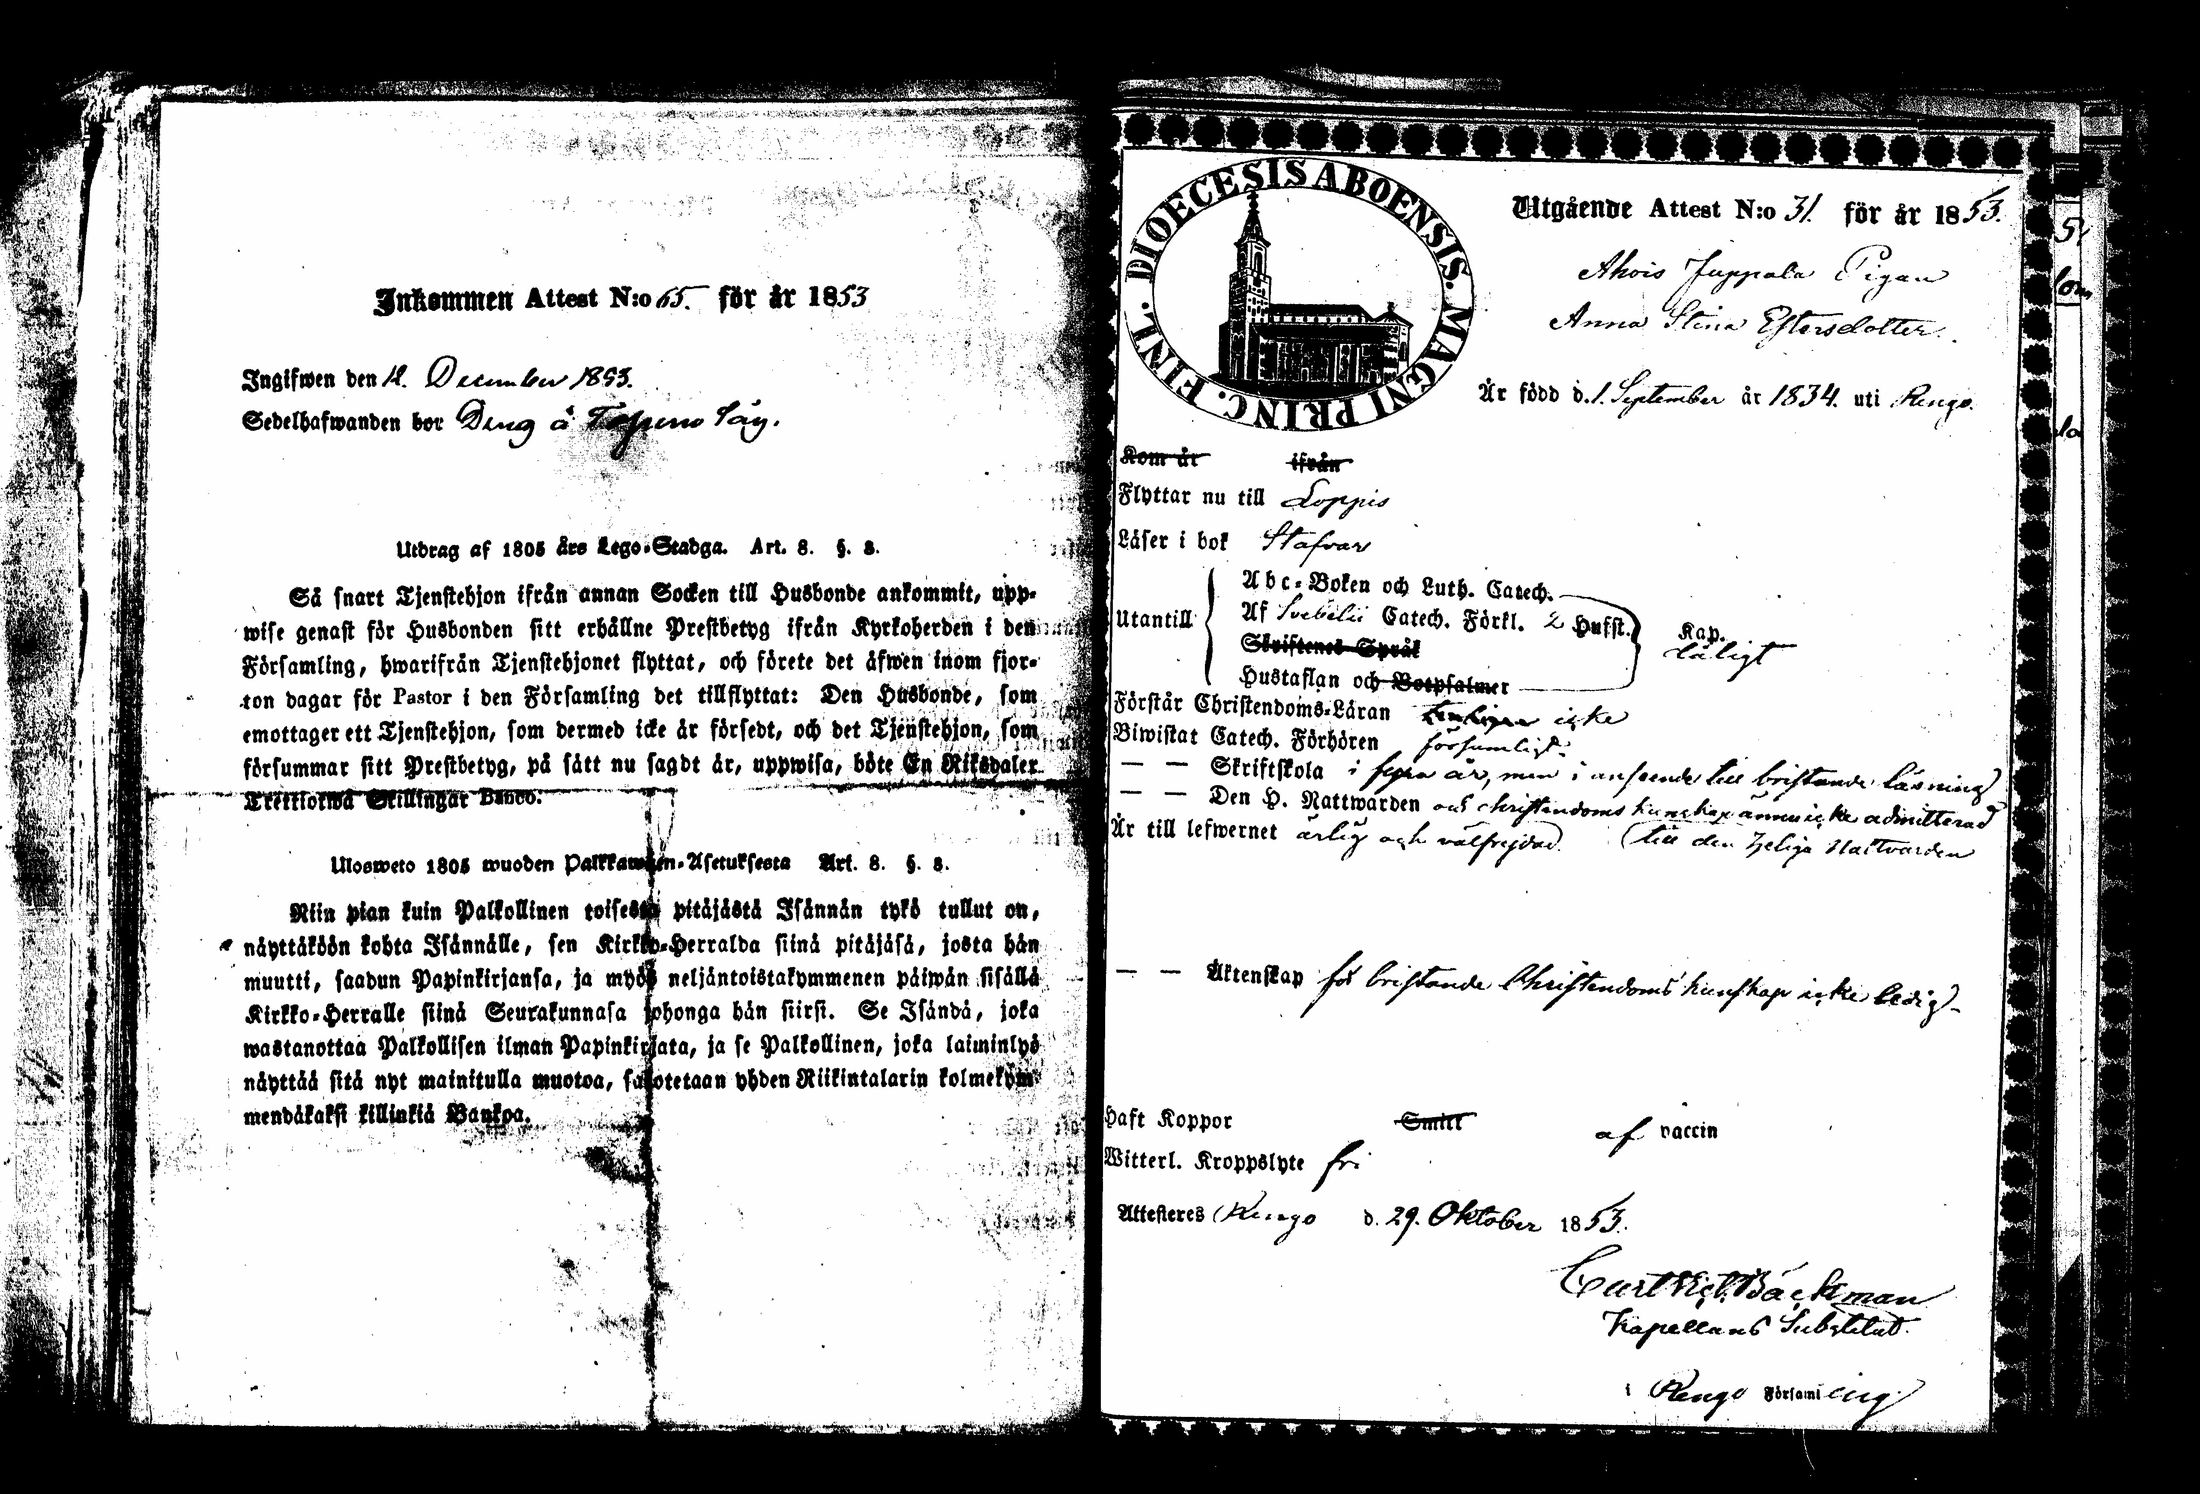 Inkommen Attest N:o 65. för år 1853
Ingifwen den 12. December 1853.
Sedelhafwanden bor Dräng å Topeno Säy.
Utdrag af 1805 års Lego-Stadga. Art. 8. §. 8.
Så snart Tjenstehjon ifrån annan Socken till Husbonde ankommit, upp-
wise genast för Husbonden sitt erhållne Prestbetyg ifrån Kyrkoherden i den
Församling, hwarifrån Tjenstehjonet flyttat, och förete det äfwen inom fjor-
ton dagar för Pastor i den Församling det tillflyttat: Den Husbonde, som
emottager ett Tjenstehjon, som dermed icke är försedt, och det Tjenstehjon, som
försummar sitt Prestbetyg, på sätt nu sagdt är, uppwisa, böte En Riksdaler
Trettiotwå Skillingar Banco.
Ulosweto 1805 wuoden Palkkawäen-Asetuksesta Art. 8. §. 8.
Niin pian kuin Palkollinen toisesta pitäjästä Isännän tykö tullut on,
näyttäköön kohta Isännälle, sen Kirkko-Herralda siinä pitäjäsä, josta hän
muutti, saadun Papinkirjansa, ja myös neljäntoistakymmenen päiwän sisällä
Kirkko-Herralle siinä Seurakunnasa johonga hän siirsi. Se Isändä, joka
wastanottaa Palkollisen ilman Papinkirjata, ja se Palkollinen, joka laiminlyö
näyttää sitä nyt mainitulla muotoa, sakotetaan yhden Riikintalarin kolmekym-
mendäkaksi killinkiä Bankoa.
DIOECESIS ABOENSIS. MAGNI PRINC. FINL.
Utgående Attest N:o 31. för år 1853.
Ahois Juppala Pigan
Anna Stina Estersdotter.
Är född d. 1. September år 1834. uti Rengo.
Kom år ifrån
Flyttar nu till Loppis
Läser i bok Stafvar
Abc-Boken och Luth. Catech.
Utantill Af Svebelii Catech. Förkl. 2 Hufst. Kap.
Skriftenes Språk dåligt
Hustaflan och Botpsalmer
Förstår Christendoms-Läran icke
Biwistat Catech. Förhören försumligt.
— — Skriftskola i fyra år, men i anseende till bristande läsning
— — Den H. Nattwarden och christendoms kunskap ännu icke admitterad
Är till lefwernet ärlig och välfrejdad. till den Helige Nattvarden
— — Äktenskap för bristande Christendoms kunskap icke ledig.
Haft Koppor Smitt af vaccin
Witterl. Kroppslyte fri
Attesteres Rengo d. 29. Oktober 1853.
Curt Bäckman
Kapellans Substitut.
i Rengo Församling